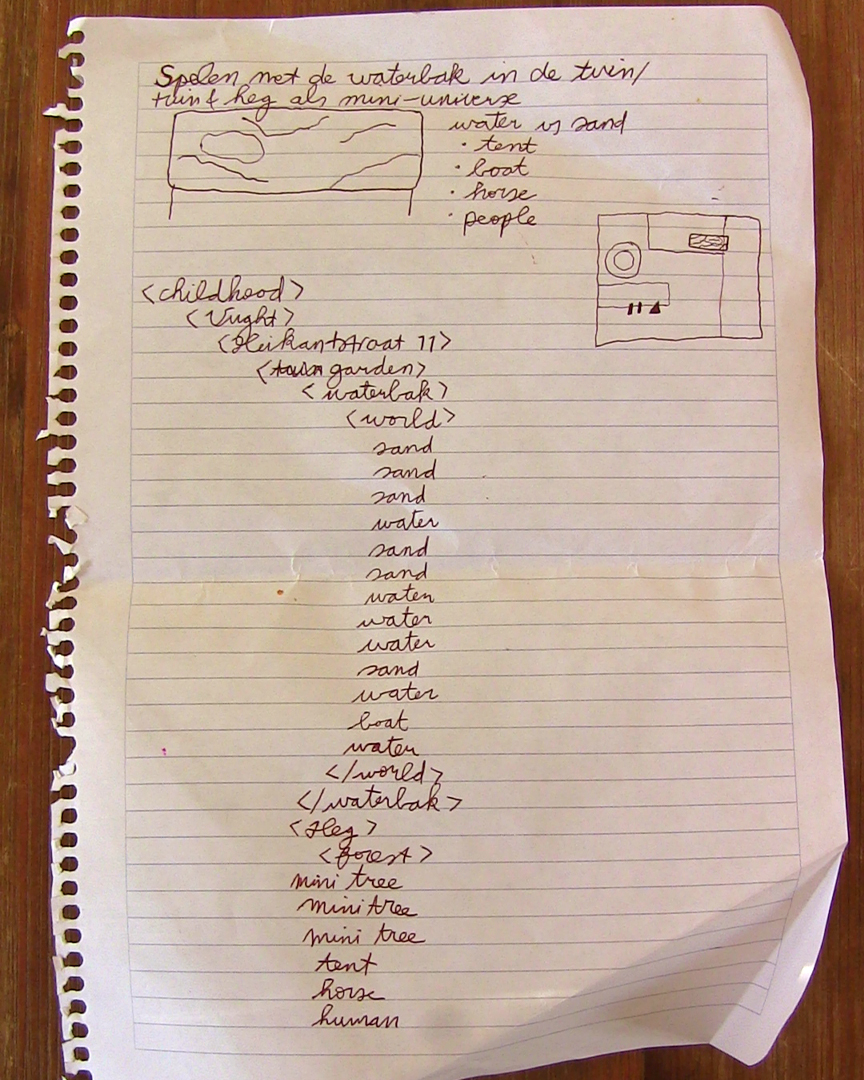 Spelen met de waterbak in de tuin/
tuin & heg als mini-universe
water vs sand
· tent
· boat
· horse
· people
<childhood>
<Vught>
<Heikantstraat 11>
<tuin garden>
<waterbak>
<world>
sand
sand
sand
water
sand
sand
water
water
water
sand
water
boat
water
</world>
</waterbak>
<Heg>
<forest>
mini tree
mini tree
mini tree
tent
horse
human